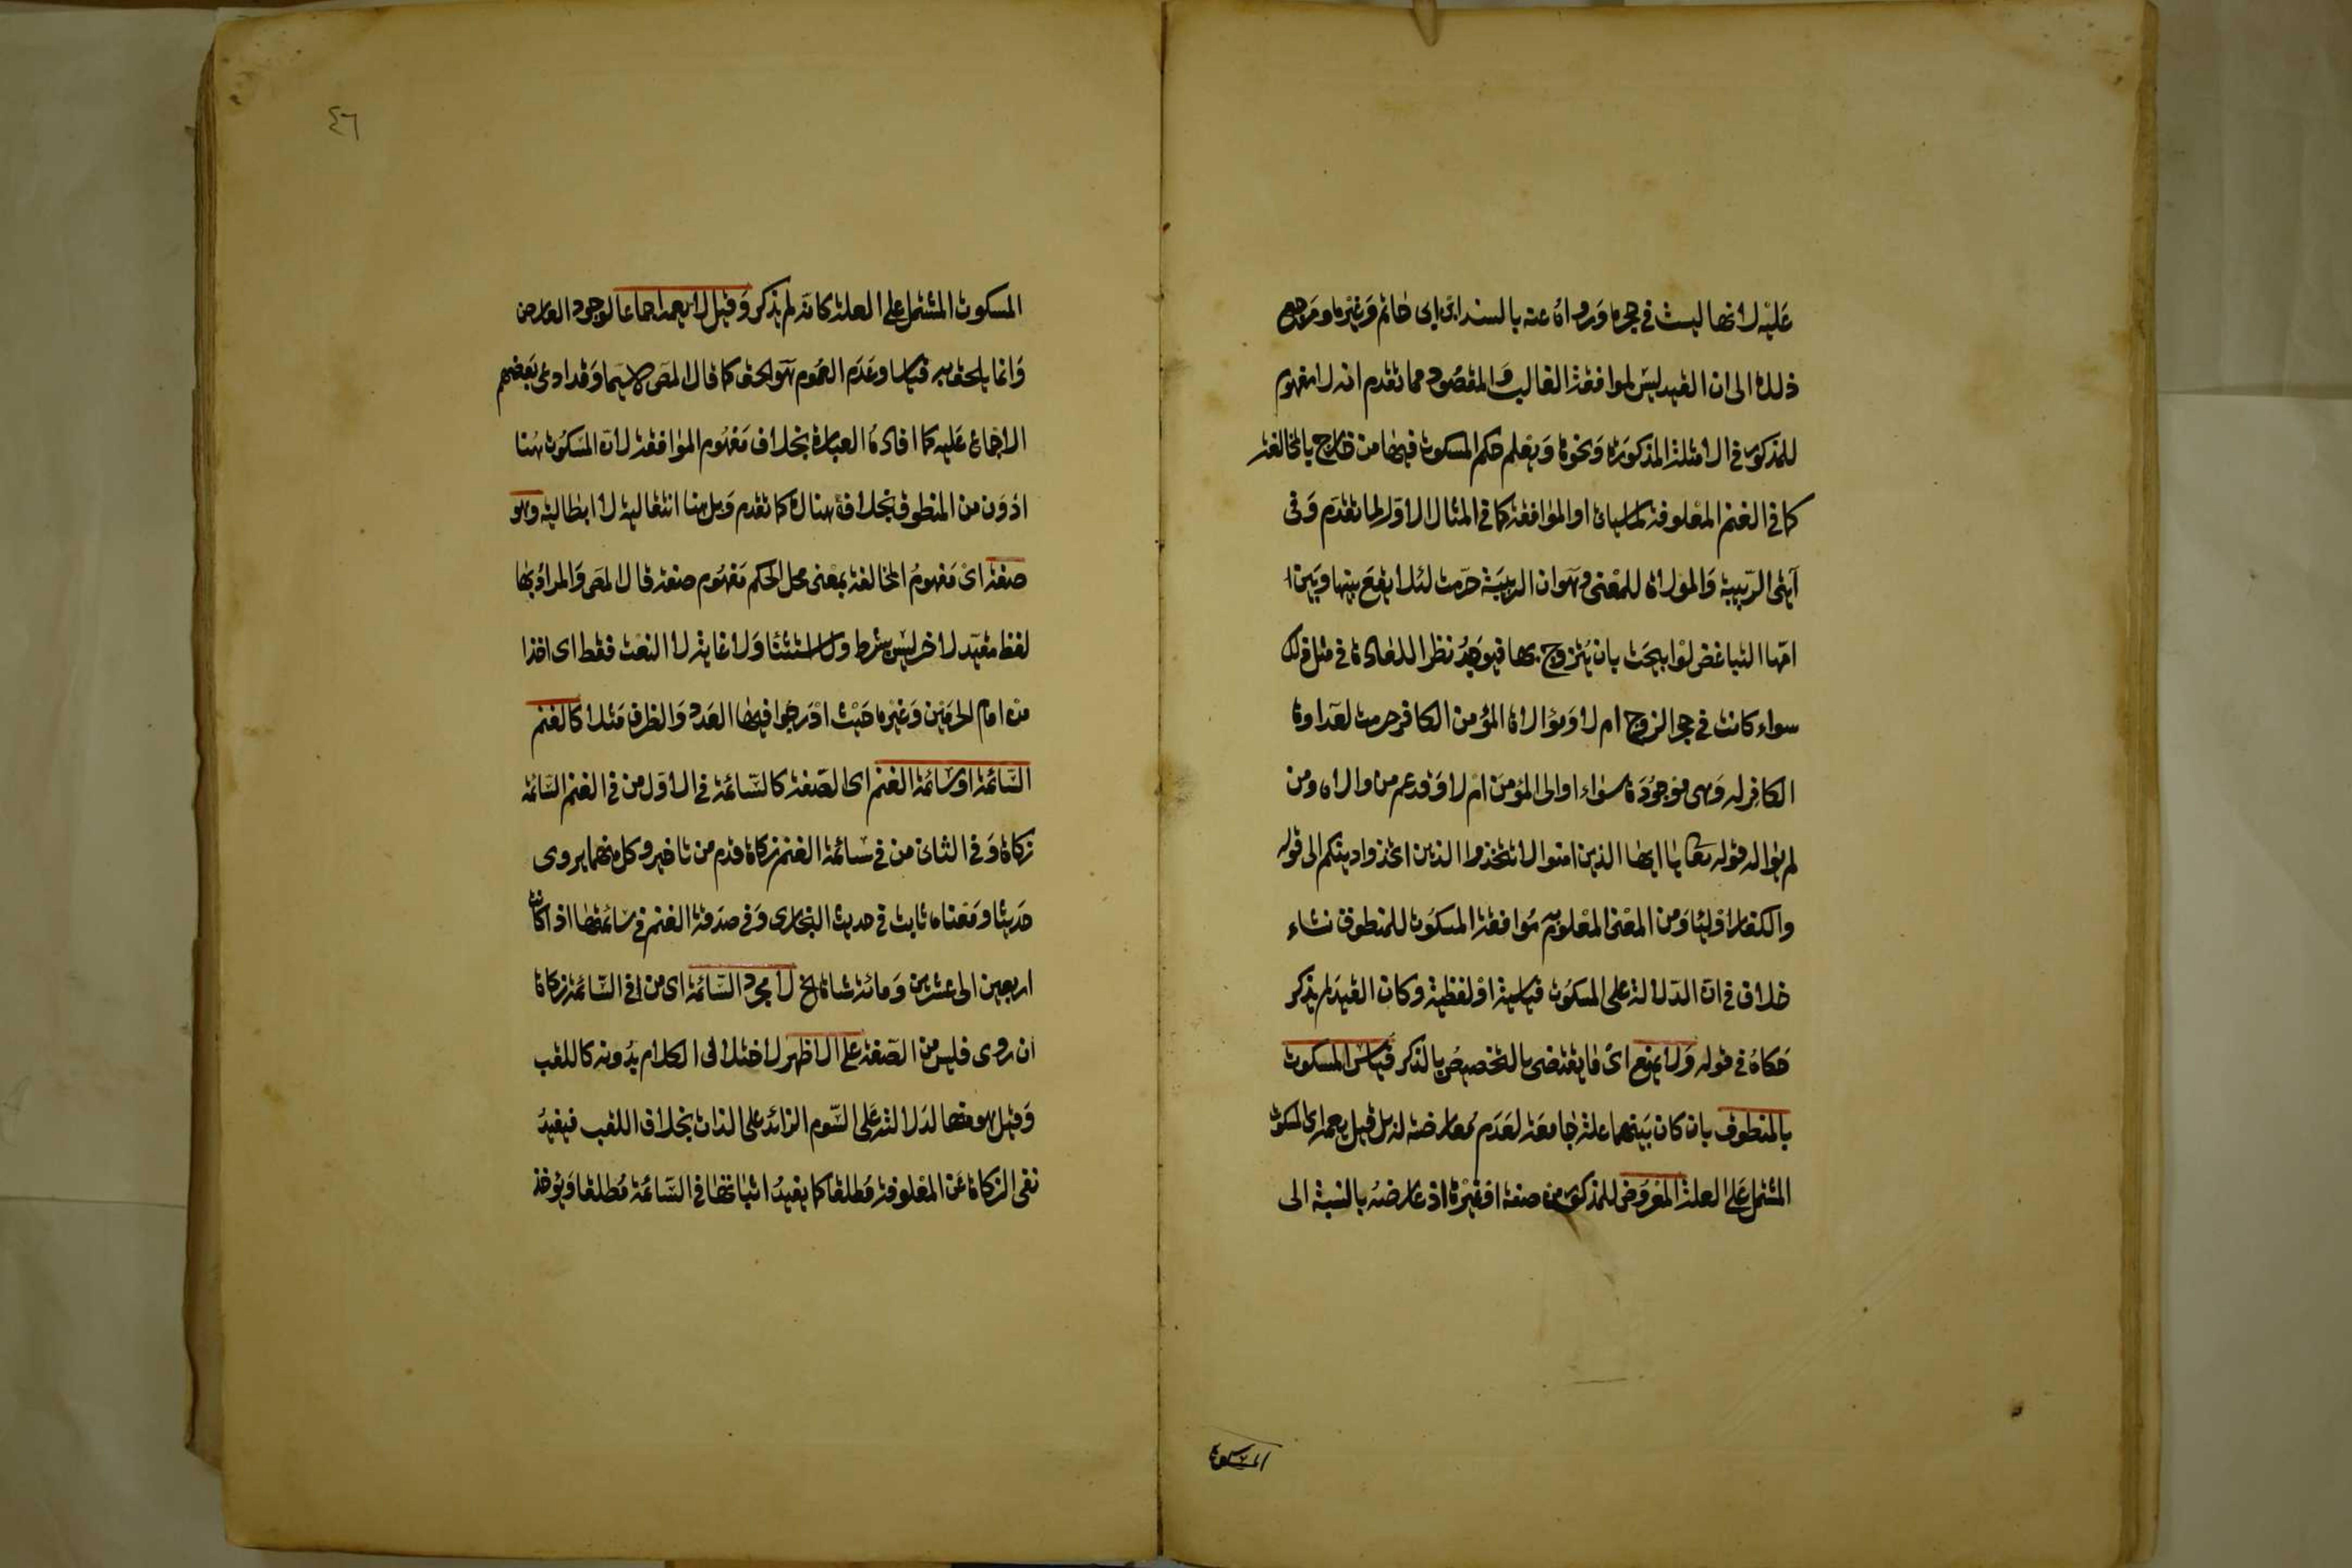 عليه لانها ليست في حجره ورواه عنه بالسند ابن ابي حاتم وغيره ومرجع
ذلك الى ان القيد ليس لموافقة الغالب والمقصود مما تقدم انه لا مفهوم
للمذكور في الامثلة المذكورة ونحوها ويعلم حكم المسكوت فيها من خارج بالمخالفة
كما في الغنم المعلوفة لما سياتي او الموافقة كما في المثال الاول لما تقدم وفي
آيتي الربيبة والموالاة للمعنى وهو ان الربيبة حرمت لئلا يقع بينها وبين ا
امها التباغض لو ابيحت بان يتزوج بها فيوجد نظرا للعادة في مثل ذلك
سواء كانت في حجر الزوج ام لا وموالاة المؤمن الكافر حرمت لعداوة
الكافر له وهي موجودة سواء اوالى المؤمن ام لا وقد عم من والاه ومن
لم يواله قوله تعا يا ايها الذين امنوا لا تتخذوا الذين اتخذوا دينكم الى قوله
والكفار اوليا ومن المعنى المعلوم به موافقة المسكوت للمنطوق نشاء
خلاف في ان الدلالة على المسكوت قياسية او لفظية وكان القيد لم يذكر
حكاه في قوله ولا يمنع اى ما يقتضي بالتخصيص بالذكر قياس المسكوت
بالمنطوق بان كان بينهما علة جامعة لعدم معارضته له بل قيل يعمه اى المسكوت
المشتمل على العلة المعروض للمذكور من صفة او غيرها اذ عارضه بالنسبة الى
المسكوت
٤٦
المسكوت المشتمل على العلة كانه لم يذكر وقيل لا يعمه اجماعا لوجود العارض
وانما يلحق به قياسا وعدم العموم هو الحق كما قال المص لا سيما وقد ادعى بعضهم
الاجماع عليه كما افاده العبارة بخلاف مفهوم الموافقة لان المسكوت هنا
ادون من المنطوق بخلافه هناك كما تقدم وبل هنا انتقالية لا ابطالية وهو
صفة اى مفهوم المخالفة بمعنى محل الحكم مفهوم صفة قال المص والمراد بها
لفظ مقيد لاخر ليس بشرط ولا استثنا ولا غاية لا النعت فقط اى اخذا
من امام الحرمين وغيره حيث ادرجوا فيها العدد والظرف مثلا كالغنم
السائمة او سائمة الغنم اى الصفة كالسائمة في الاول من في الغنم السائمة
زكاة وفي الثاني من في سائمة الغنم زكاة قدم من تاخير وكل منهما يروى
حديثا ومعناه ثابت في حديث البخارى وفي صدقة الغنم في سائمتها اذا كانت
اربعين الى عشرين ومائة شاة الخ لا مجرد السائمة اى من في السائمة زكاة
ان روى فليس من الصفة على الاظهر لاختلال الكلام بدونه كاللقب
وقيل هو منها لدلالته على السوم الزائد على الذات بخلاف اللقب فيفيد
نفي الزكاة عن المعلوفة مطلقا كما يفيد اثباتها في السائمة مطلقا ويؤخذ